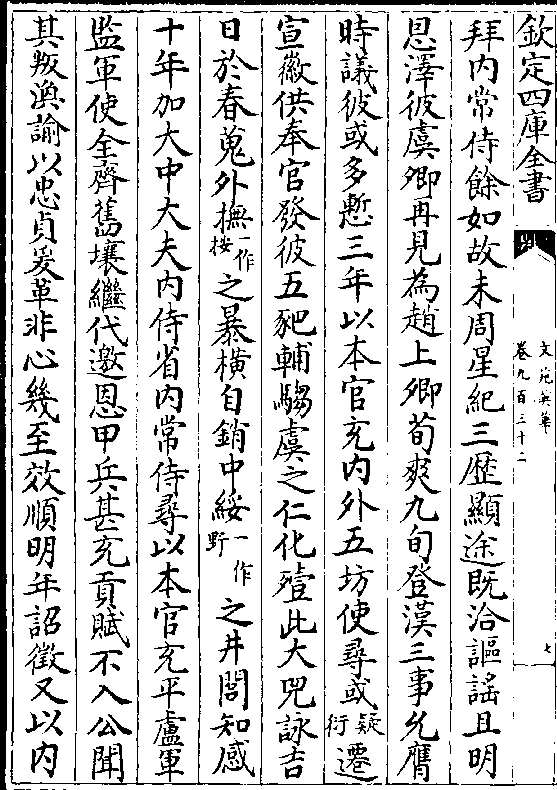 欽定四庫全書
文苑英華
卷九百三十二
七
拜内常侍餘如故未周星紀三歴顯途既洽謳謡且明
恩澤彼虞卿再見為趙上卿荀爽九旬登漢三事允膺
時議彼或多慙三年以本官充内外五坊使尋或疑衍遷
宣徽供奉官發彼五豝輔騶虞之仁化殪此大兕詠吉
日於春蒐外撫一作按之暴横自銷中綏一作野之井閭知感
十年加大中大夫内侍省内常侍尋以本官充平盧軍
監軍使全齊舊壤繼代邀恩甲兵甚充貢賦不入公聞
其叛渙諭以忠貞爰革非心幾至效順明年詔徵又以内